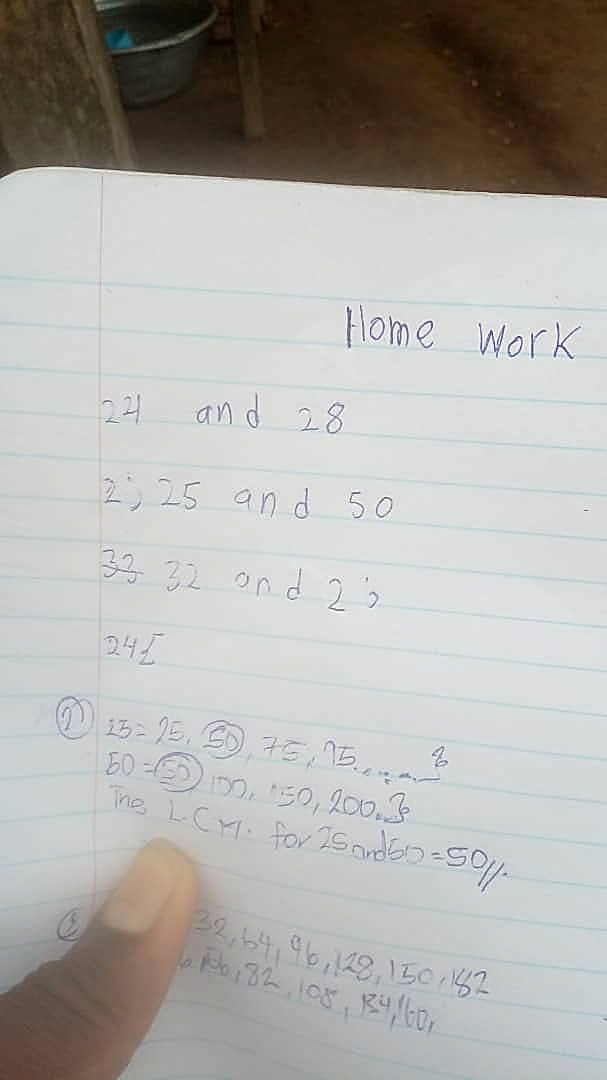 Home Work
24 and 28
2; 25 and 50
32 and
24
② 25 = 25, 50, 75, 95
50 = 50 100, 150, 200
The L.C.M. for 25 and 50 = 50
32, 64, 96, 128, 150, 182
82, 108, 134, 160,